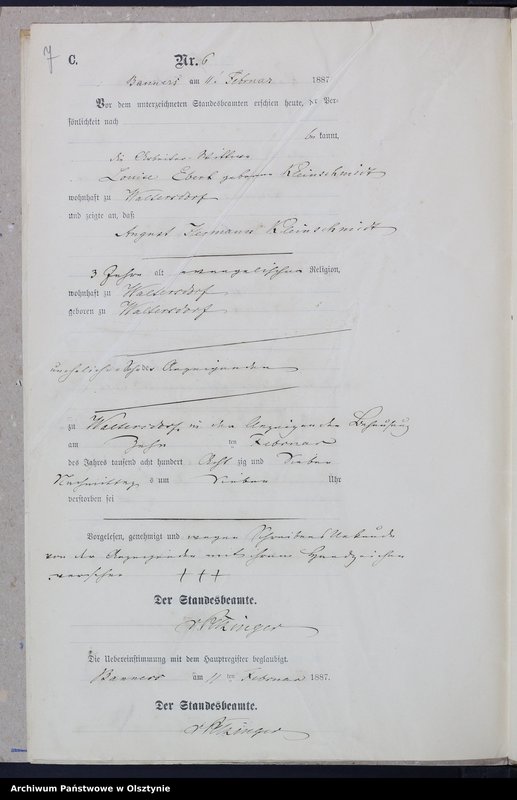 7
C. Nr. 6
Banners am 11. Februar 1887
Vor dem unterzeichneten Standesbeamten erschien heute, der Per-
sönlichkeit nach
be kannt,
die Arbeiter-Wittwe
Louise Ebert geborene Kleinschmidt
wohnhaft zu Waltersdorf
und zeigte an, daß
August Hermann Kleinschmidt
3 Jahre alt evangelischer Religion,
wohnhaft zu Waltersdorf
geboren zu Waltersdorf
unehelicher Sohn der Anzeigenden
zu Waltersdorf in der Anzeigenden Behausung
am Zehn ten Februar
des Jahres tausend acht hundert Acht zig und Sieben
Nachmittag s um Sieben Uhr
verstorben sei
Vorgelesen, genehmigt und wegen Schreibensunkunde
von der Anzeigenden mit ihrem Handzeichen
versehen +++
Der Standesbeamte.
Die Uebereinstimmung mit dem Hauptregister beglaubigt.
Banners am 11 ten Februar 1887.
Der Standesbeamte.
Archiwum Państwowe w Olsztynie